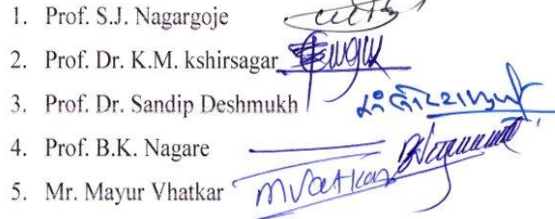 1. Prof. S.J. Nagargoje
2. Prof. Dr. K.M. kshirsagar
3. Prof. Dr. Sandip Deshmukh
4. Prof. B.K. Nagare
5. Mr. Mayur Vhatkar MVatkar